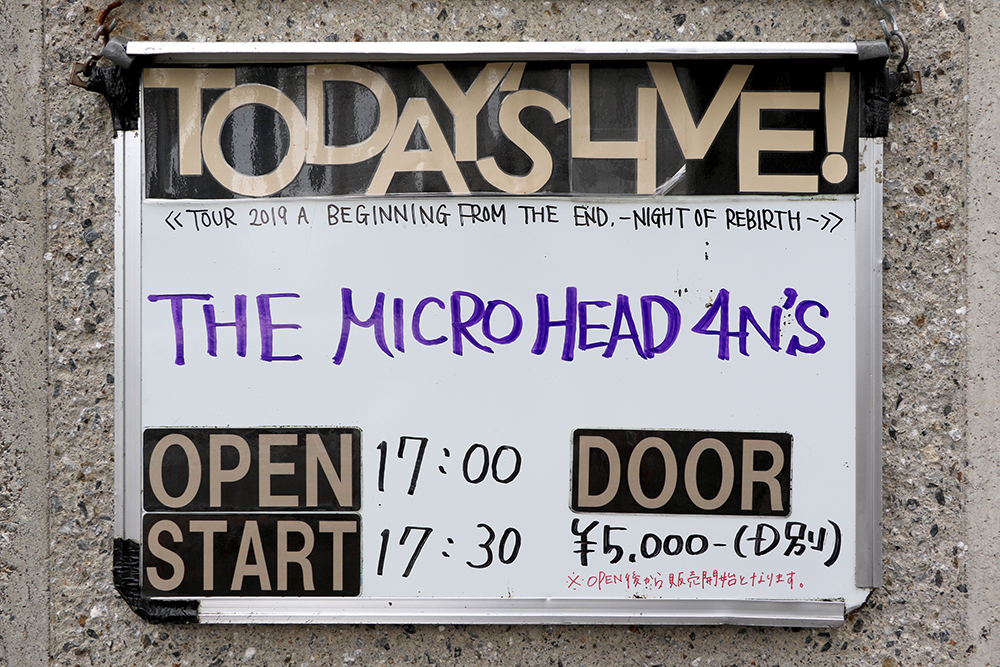 TODAY'S LIVE!
≪TOUR 2019 A BEGINNING FROM THE END. -NIGHT OF REBIRTH-≫
THE MICRO HEAD 4N'S
OPEN 17:00
START 17:30
DOOR
¥5.000-(D別)
※OPEN後から販売開始となります。